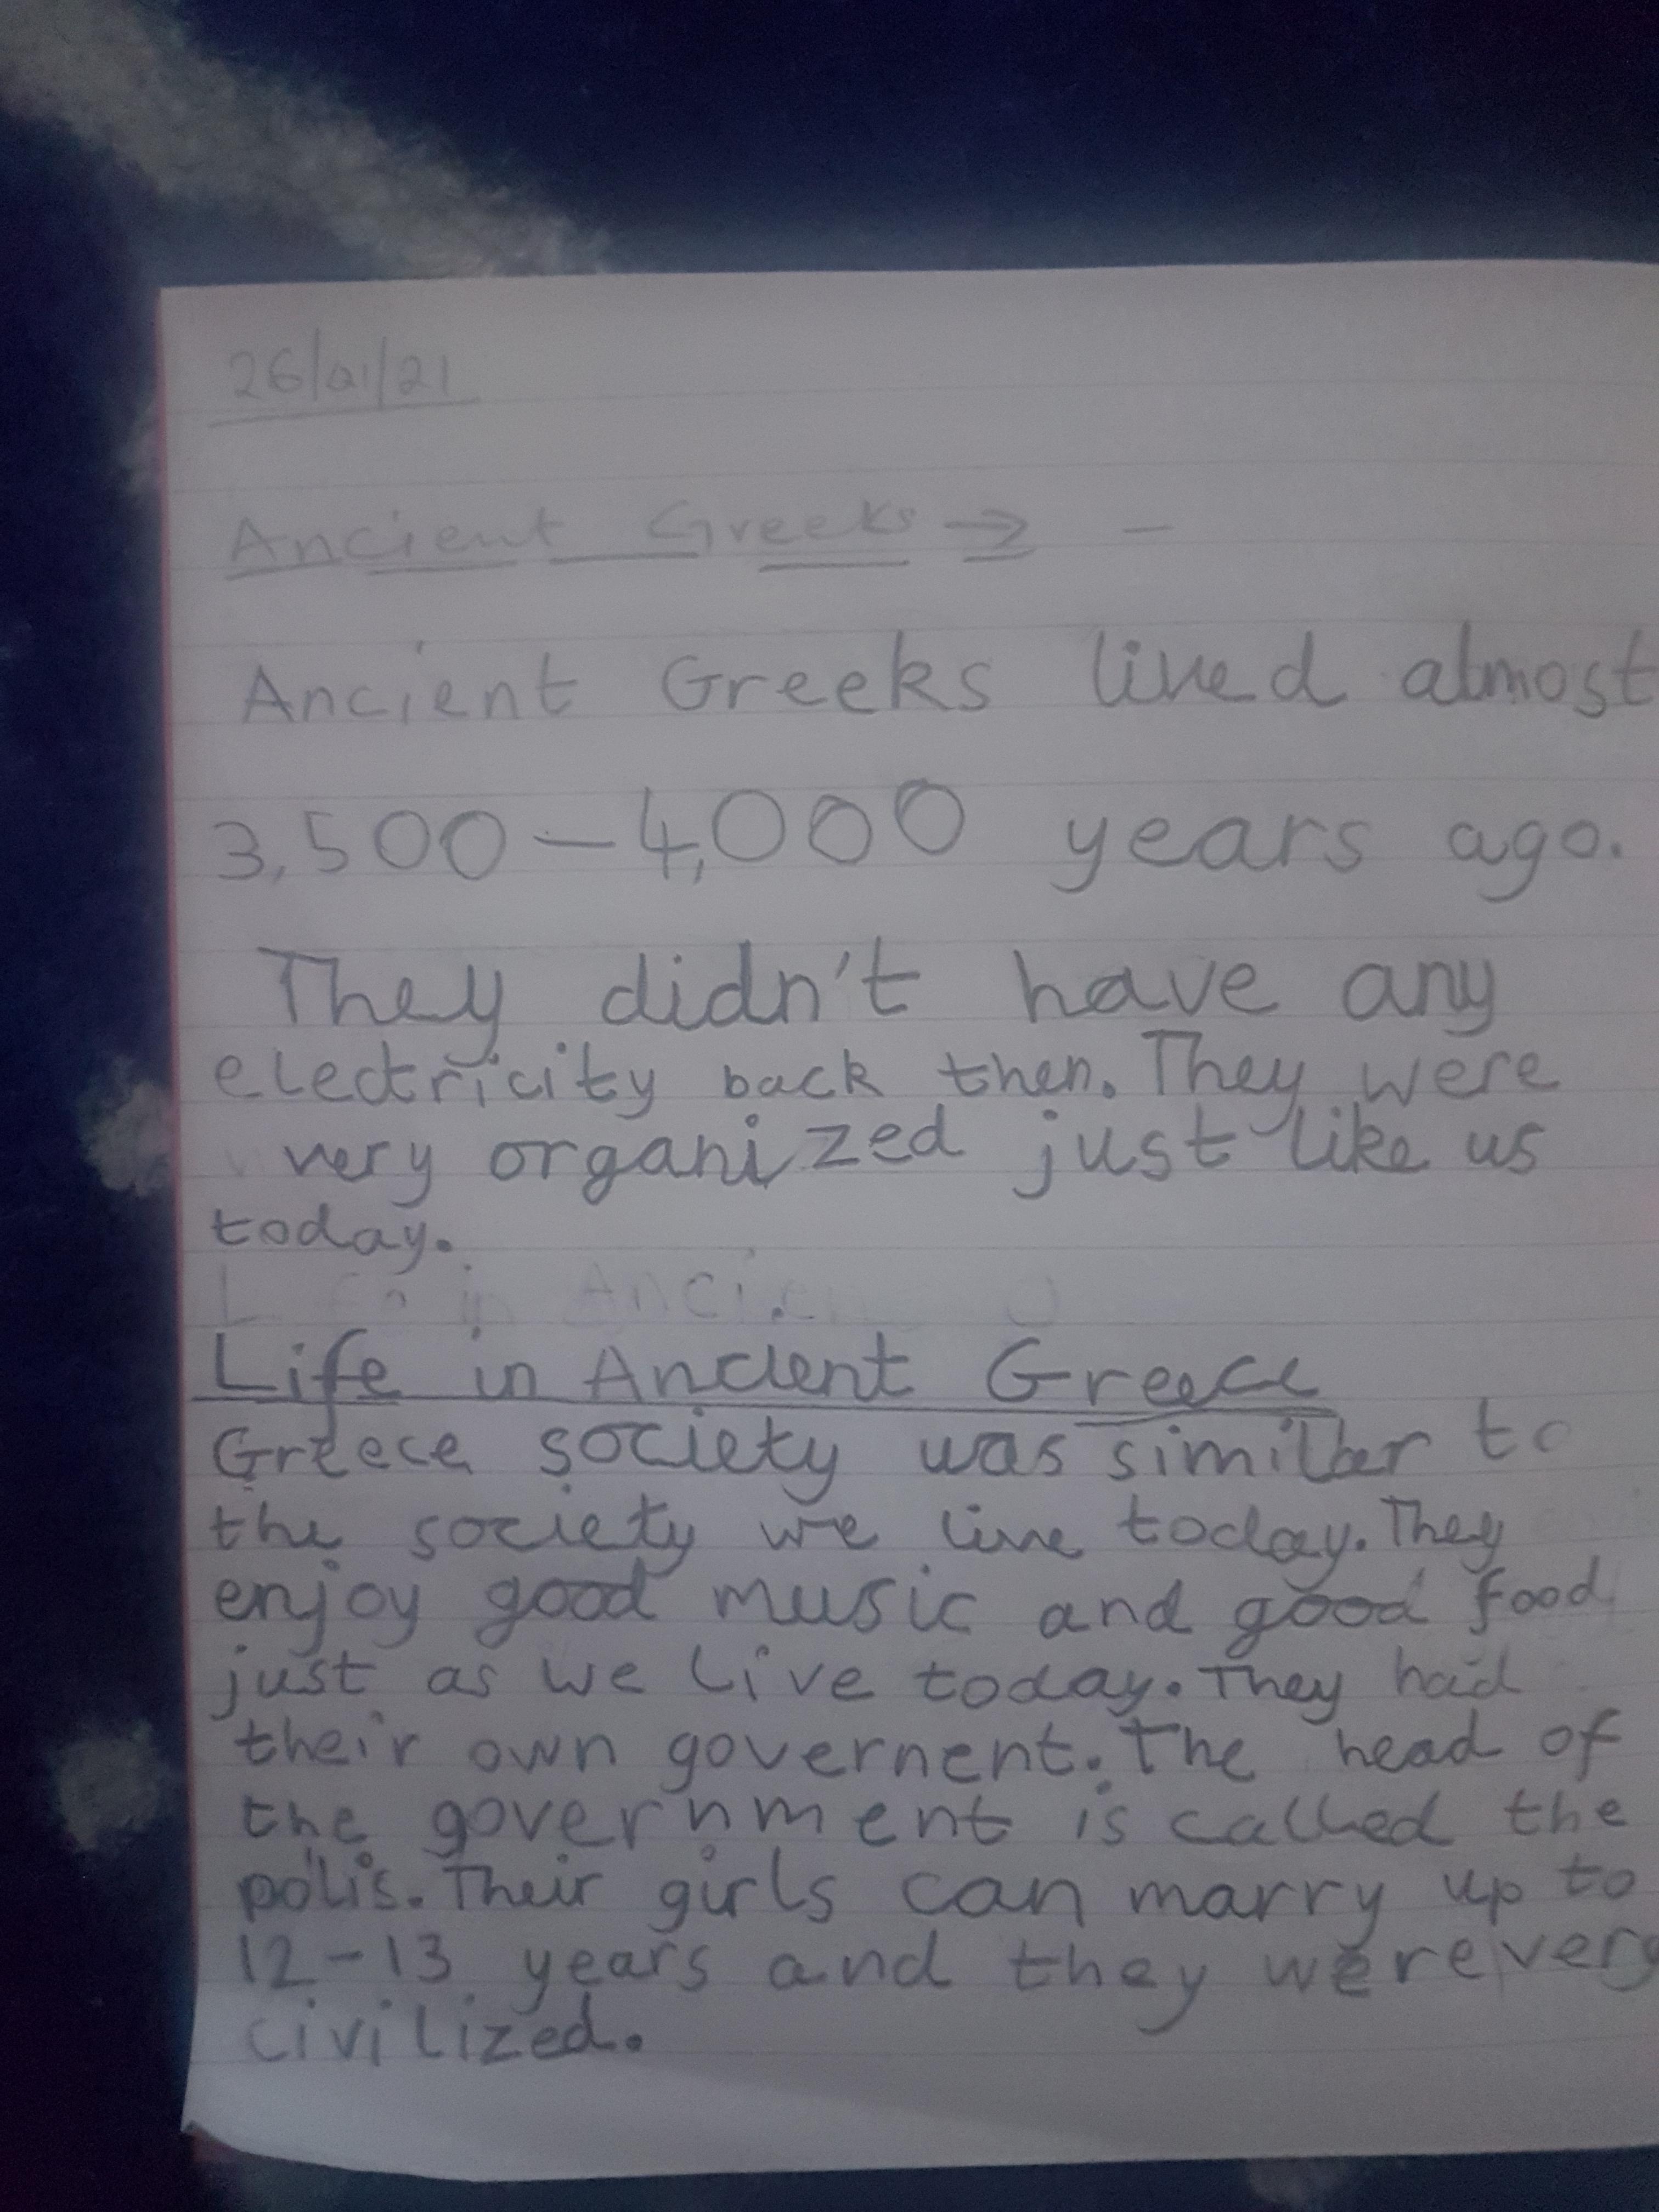 26/01/21
Ancient Greeks → -
Ancient Greeks lived almost
3,500-4,000 years ago.
They didn't have any
electricity back then. They were
very organized just like us
today.
Life in Ancient Greece
Greece society was similar to
the society we live today. They
enjoy good music and good food
just as we live today. They had
their own governent. The head of
the government is called the
polis. Their girls can marry up to
12-13 years and they were very
civilized.